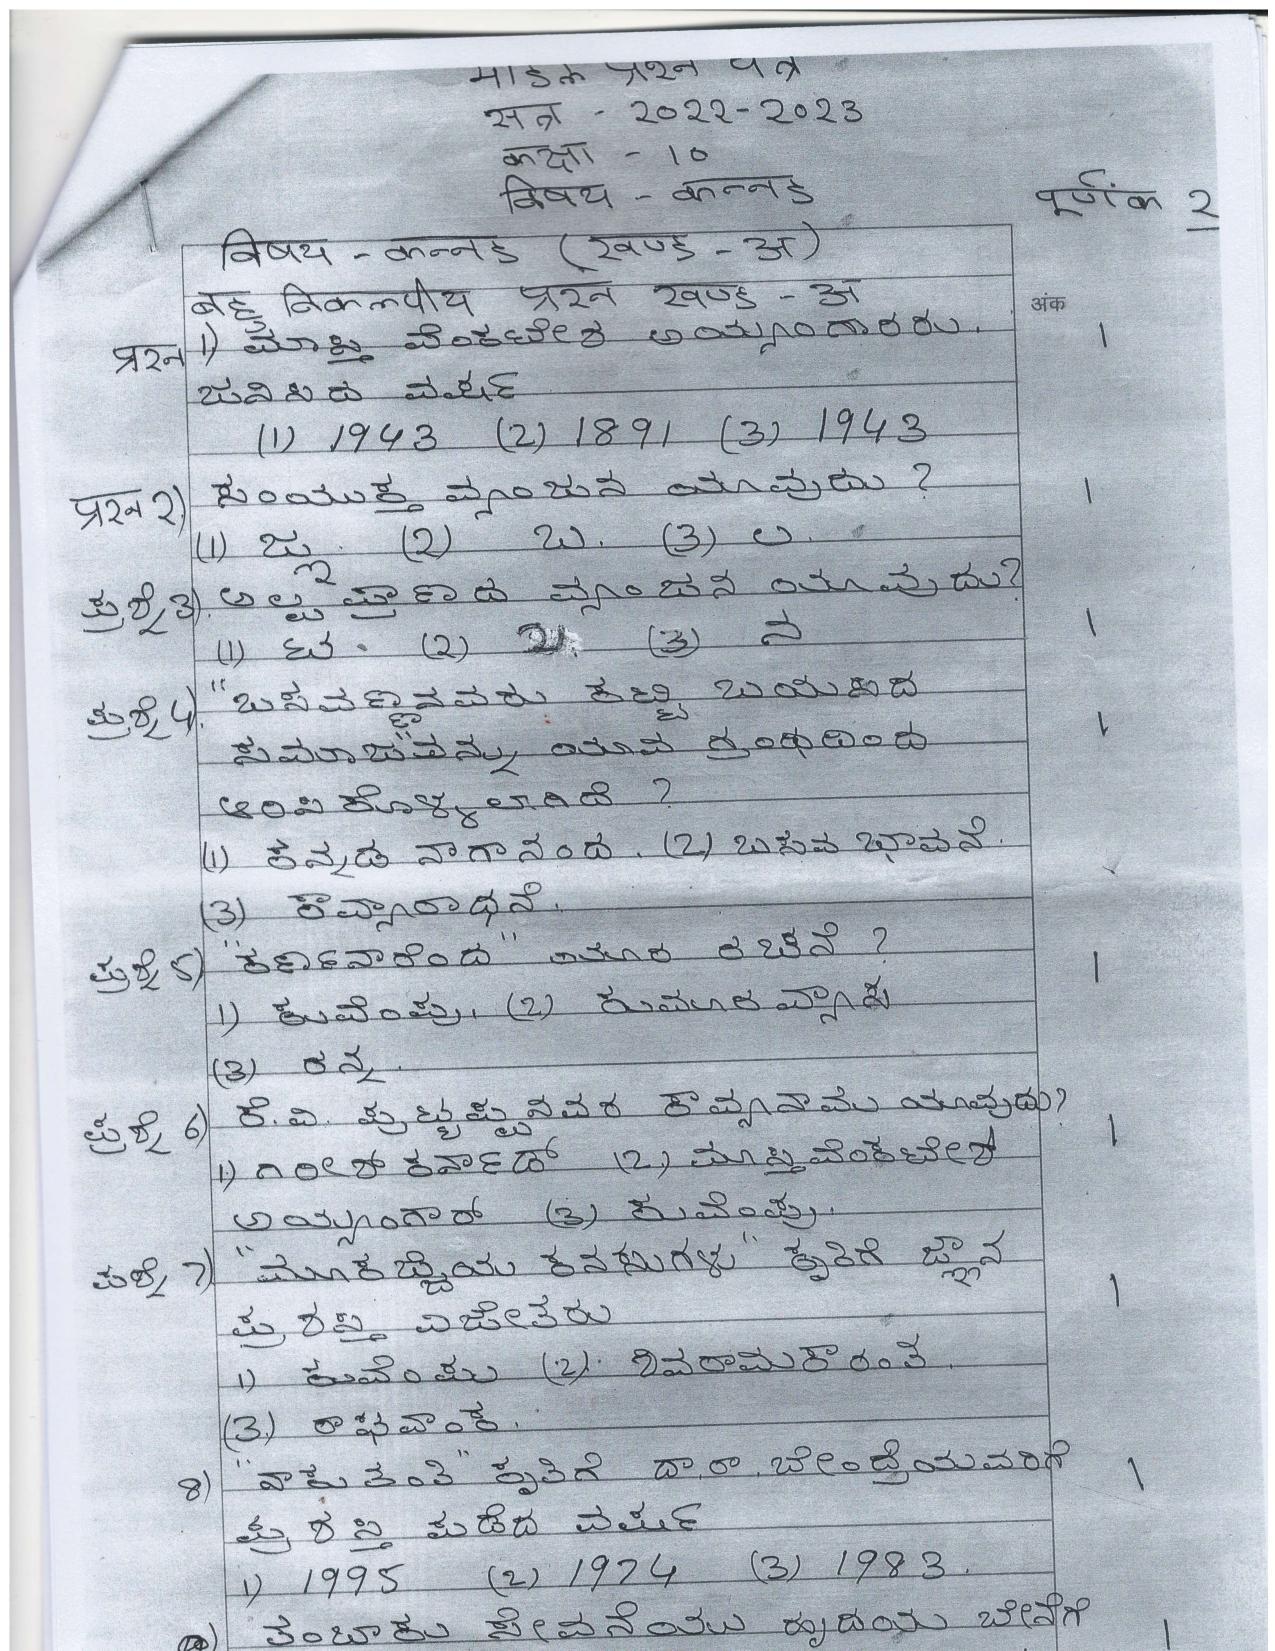 माडल प्रश्न पत्र
सत्र - २०२२-२०२३
कक्षा - १०
विषय - कन्नड
पूर्णांक २
विषय - कन्नड (खण्ड - अ)
बहु विकल्पीय प्रश्न खण्ड - अ
अंक
प्रश्न 1) ಮಾಸ್ತಿ ವೆಂಕಟೇಶ ಅಯ್ಯಂಗಾರರು. 1
ಜನಿಸಿದ ವರ್ಷ
(1) 1943 (2) 1891 (3) 1943
प्रश्न २) ಸಂಯುಕ್ತ ವ್ಯಂಜನ ಯಾವುದು? 1
(1) ಜ್ಞ. (2) ಬ. (3) ಲ.
ಪ್ರಶ್ನೆ 3) ಅಲ್ಪಪ್ರಾಣದ ವ್ಯಂಜನ ಯಾವುದು?
(1) ಘ. (2) (3) ನ 1
ಪ್ರಶ್ನೆ 4) "ಬಸವಣ್ಣನವರು ಕಟ್ಟಬಯಸಿದ
ಸಮಾಜ"ವನ್ನು ಯಾವ ಗ್ರಂಥದಿಂದ 1
ಆಯ್ದುಕೊಳ್ಳಲಾಗಿದೆ?
(1) ಕನ್ನಡ ನಾಗಾನಂದ. (2) ಬಸವ ಭಾವನೆ.
(3) ಕಾವ್ಯಾರಾಧನೆ.
ಪ್ರಶ್ನೆ 5) "ಕರ್ಣನಾರೆಂದ" ಯಾರ ರಚನೆ? 1
1) ಕುವೆಂಪು. (2) ಕುಮಾರವ್ಯಾಸ
(3) ರನ್ನ.
ಪ್ರಶ್ನೆ 6) ಕೆ.ವಿ. ಪುಟ್ಟಪ್ಪನವರ ಕಾವ್ಯನಾಮ ಯಾವುದು? 1
1) ಗಿರೀಶ್ ಕರ್ನಾಡ್ (2) ಮಾಸ್ತಿವೆಂಕಟೇಶ್
ಅಯ್ಯಂಗಾರ್ (3) ಕುವೆಂಪು.
ಪ್ರಶ್ನೆ 7) "ಮೂಕಜ್ಜಿಯ ಕನಸುಗಳು" ಕೃತಿಗೆ ಜ್ಞಾನ
ಪ್ರಶಸ್ತಿ ವಿಜೇತರು 1
1) ಕುವೆಂಪು (2). ಶಿವರಾಮಕಾರಂತ.
(3.) ರಾಘವಾಂಕ.
8) "ನಾಕುತಂತಿ" ಕೃತಿಗೆ ದಾ.ರಾ.ಬೇಂದ್ರೆಯವರಿಗೆ 1
ಪ್ರಶಸ್ತಿ ಪಡೆದ ವರ್ಷ
1) 1995 (2) 1974 (3) 1983.
ತಂಬಾಕು ಸೇವನೆಯು ಹೃದಯ ಬೇನೆಗೆ 1